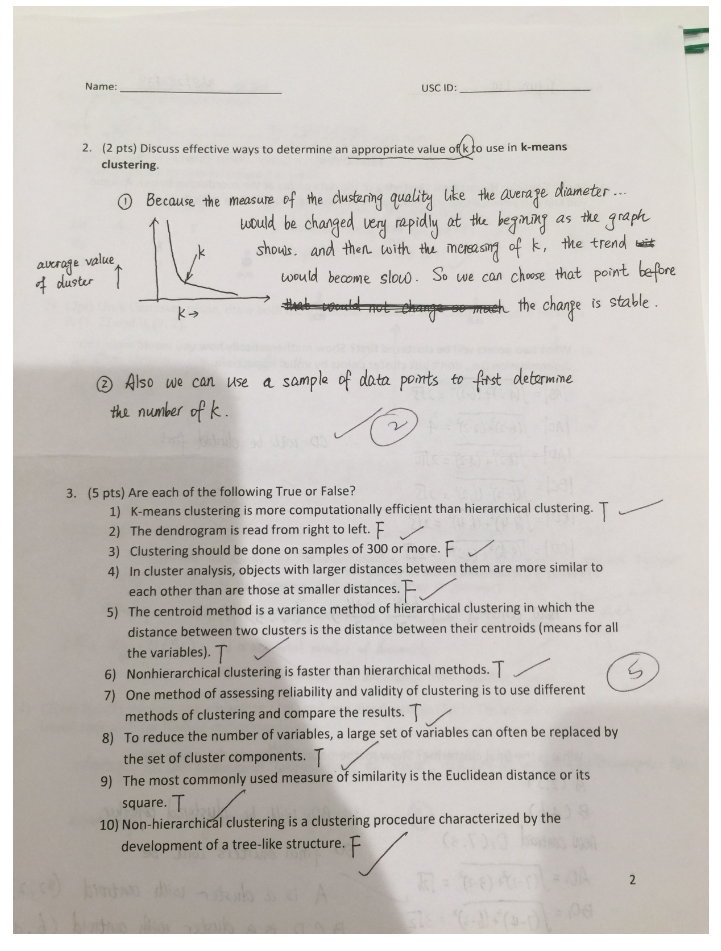 Name: USC ID:
2. (2 pts) Discuss effective ways to determine an appropriate value of k to use in k-means
clustering.
① Because the measure of the clustering quality like the average diameter...
would be changed very rapidly at the begining as the graph
shows. and then with the increasing of k, the trend
would become slow. So we can choose that point before
that would not change so much the change is stable.
k
average value
of cluster
k→
② Also we can use a sample of data points to first determine
the number of k.
2
3. (5 pts) Are each of the following True or False?
1) K-means clustering is more computationally efficient than hierarchical clustering. T
2) The dendrogram is read from right to left. F
3) Clustering should be done on samples of 300 or more. F
4) In cluster analysis, objects with larger distances between them are more similar to
each other than are those at smaller distances. F
5) The centroid method is a variance method of hierarchical clustering in which the
distance between two clusters is the distance between their centroids (means for all
the variables). T
6) Nonhierarchical clustering is faster than hierarchical methods. T
5
7) One method of assessing reliability and validity of clustering is to use different
methods of clustering and compare the results. T
8) To reduce the number of variables, a large set of variables can often be replaced by
the set of cluster components. T
9) The most commonly used measure of similarity is the Euclidean distance or its
square. T
10) Non-hierarchical clustering is a clustering procedure characterized by the
development of a tree-like structure. F
2